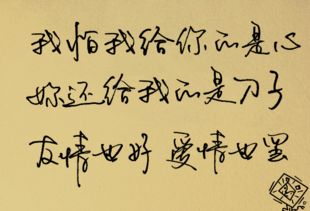 我怕我给你的是心
妳还给我的是刀子
友情也好 爱情也罢